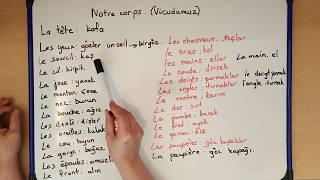 Notre corps. (Vücudumuz)
La tête: kafa
Les yeux: gözler un oeil → bir göz.
Le sourcil: kaş
Le cil: kirpik
La joue: yanak
Le menton: çene
Le nez: burun
La bouche: ağız
Les dents: dişler
Les oreilles: kulak
Le cou: boyun
La gorge: boğaz
Les épaules: omuzlar
Le front: alın
Les cheveux: saçlar
Le bras: kol
les mains: eller La main: el
Le coude: dirsek
Les doigts: parmaklar le doigt: parmak
Les ongles: tırnaklar l'ongle: tırnak
Le ventre: karın
Le dos: sırt
La jambe: bacak
Le pied: ayak
Le genou: diz
Les paupières: göz kapakları
La paupière: göz kapağı.